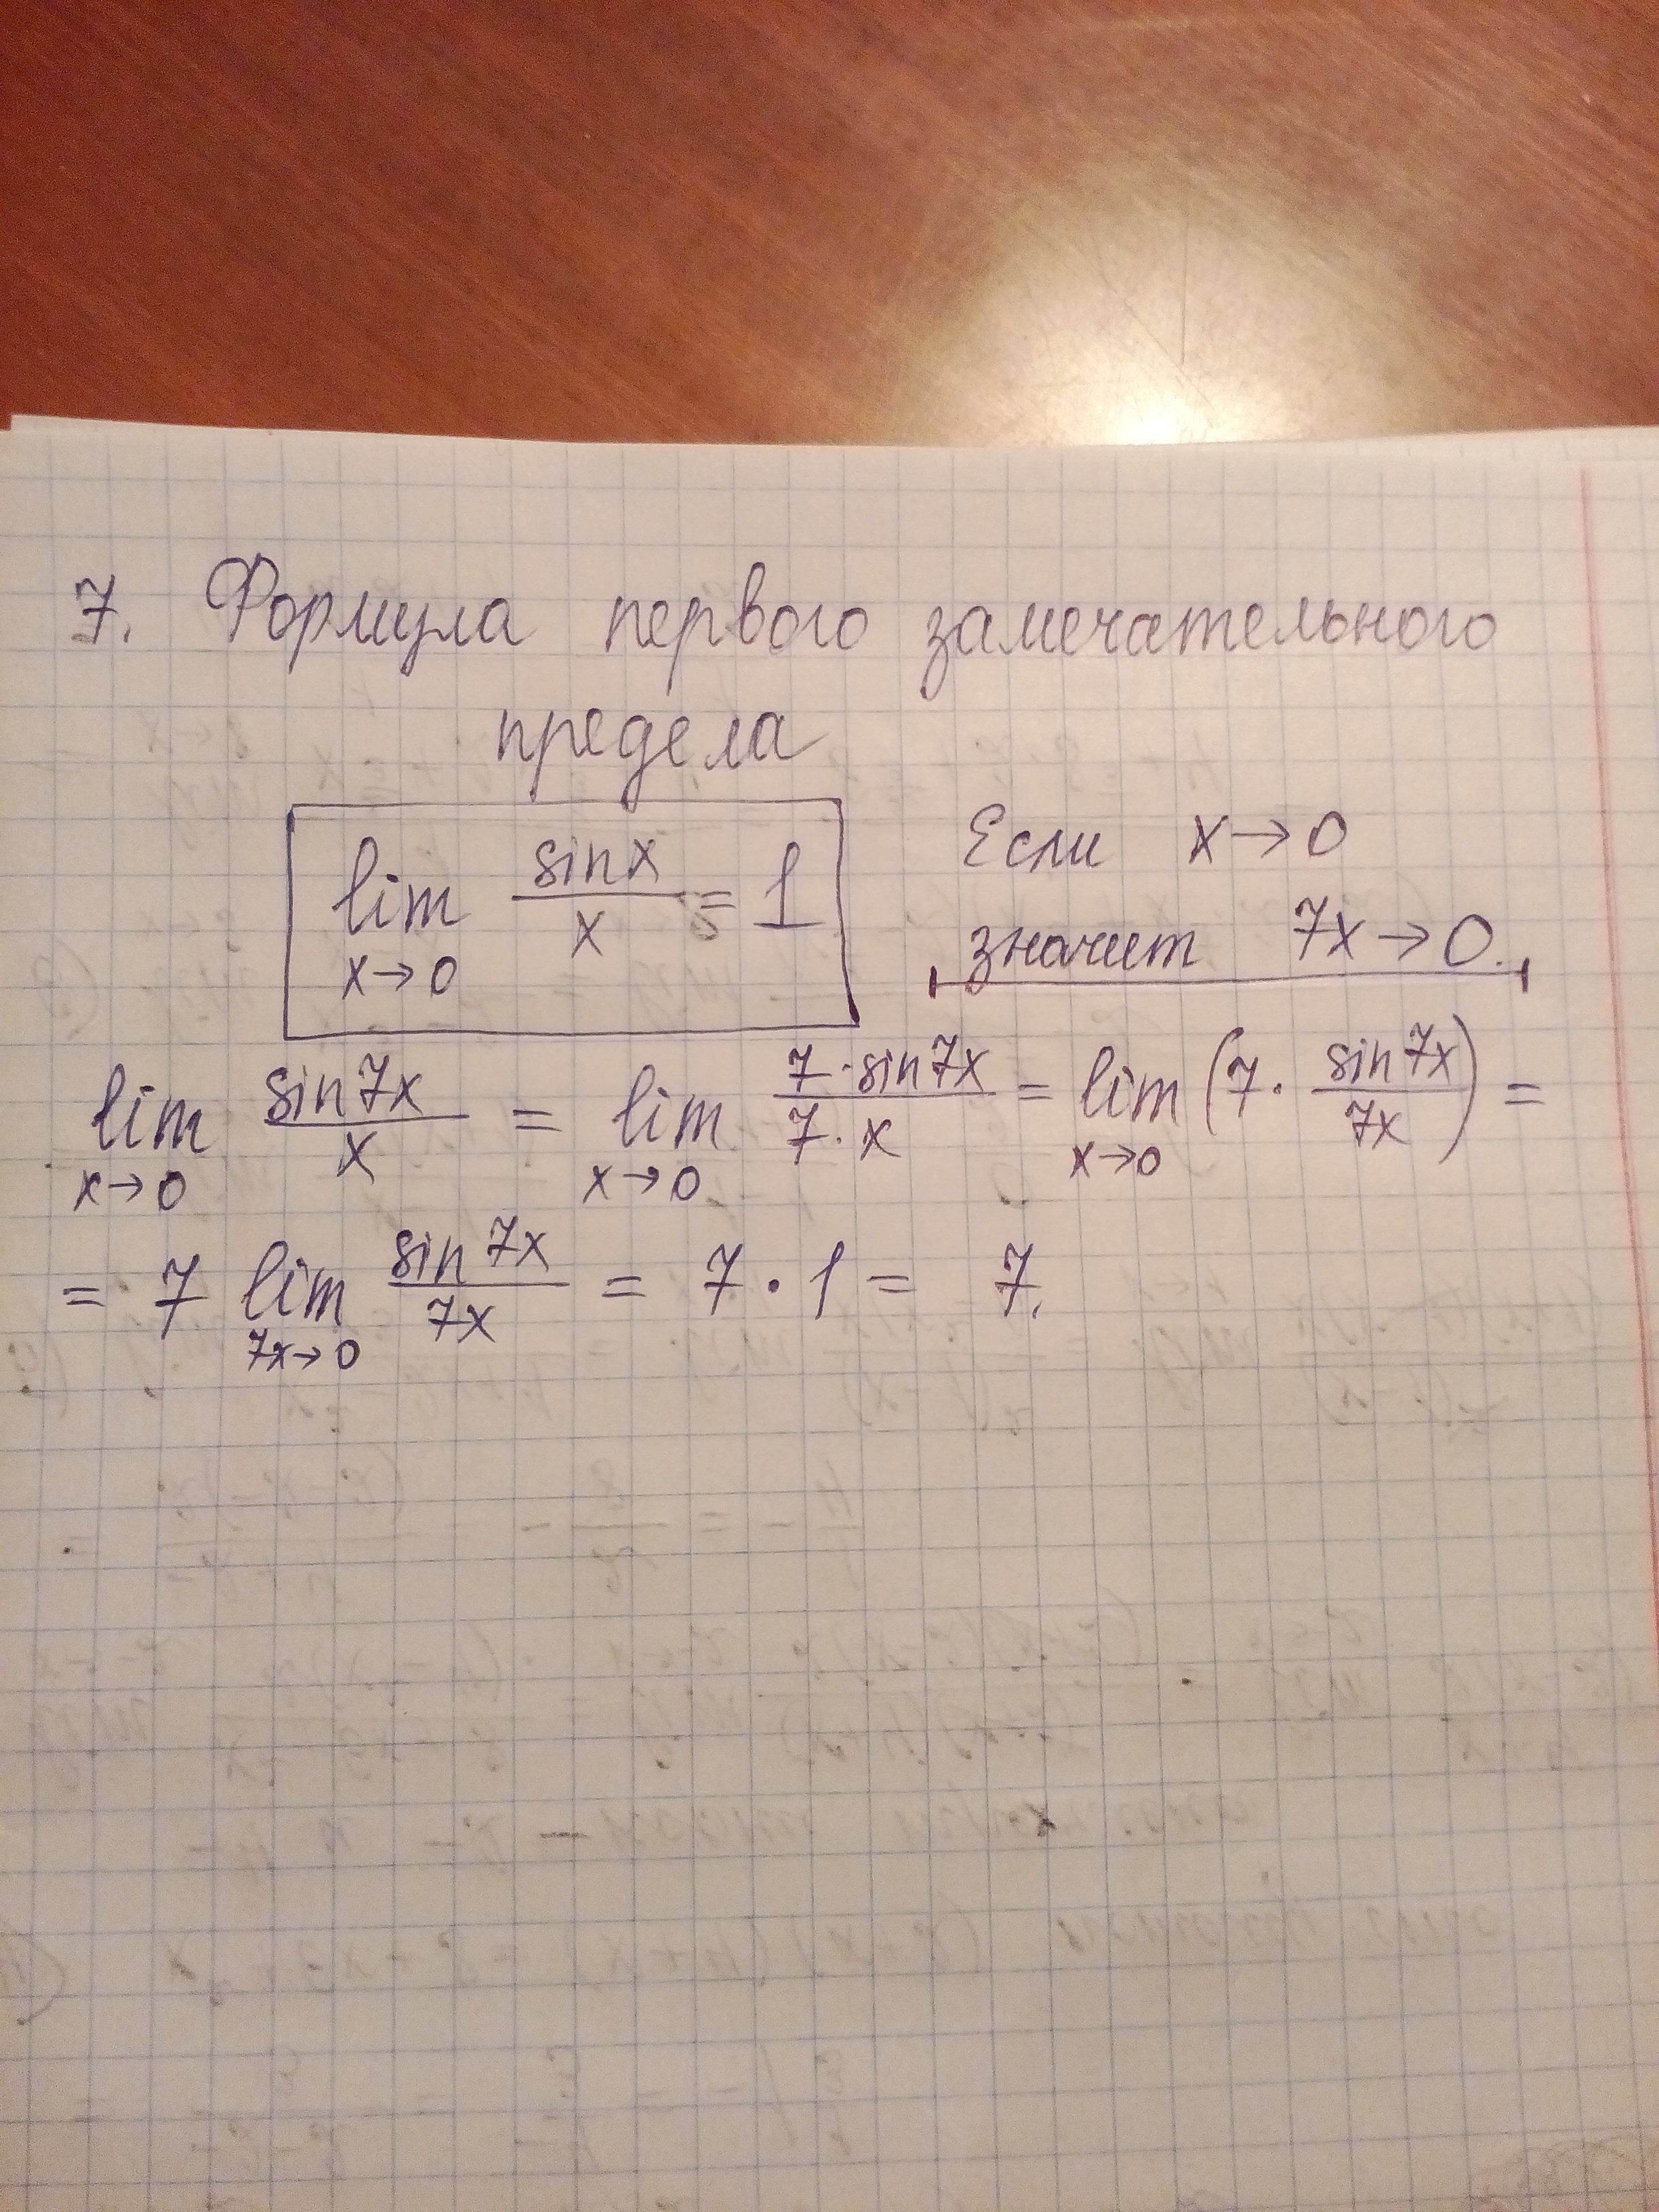 7. Формула первого замечательного
предела
lim x→0 sinx/x = 1
Если x→0
значит 7x→0.
lim x→0 sin7x/x = lim x→0 7·sin7x/7·x = lim x→0 (7· sin7x/7x) =
= 7 lim 7x→0 sin7x/7x = 7·1 = 7.